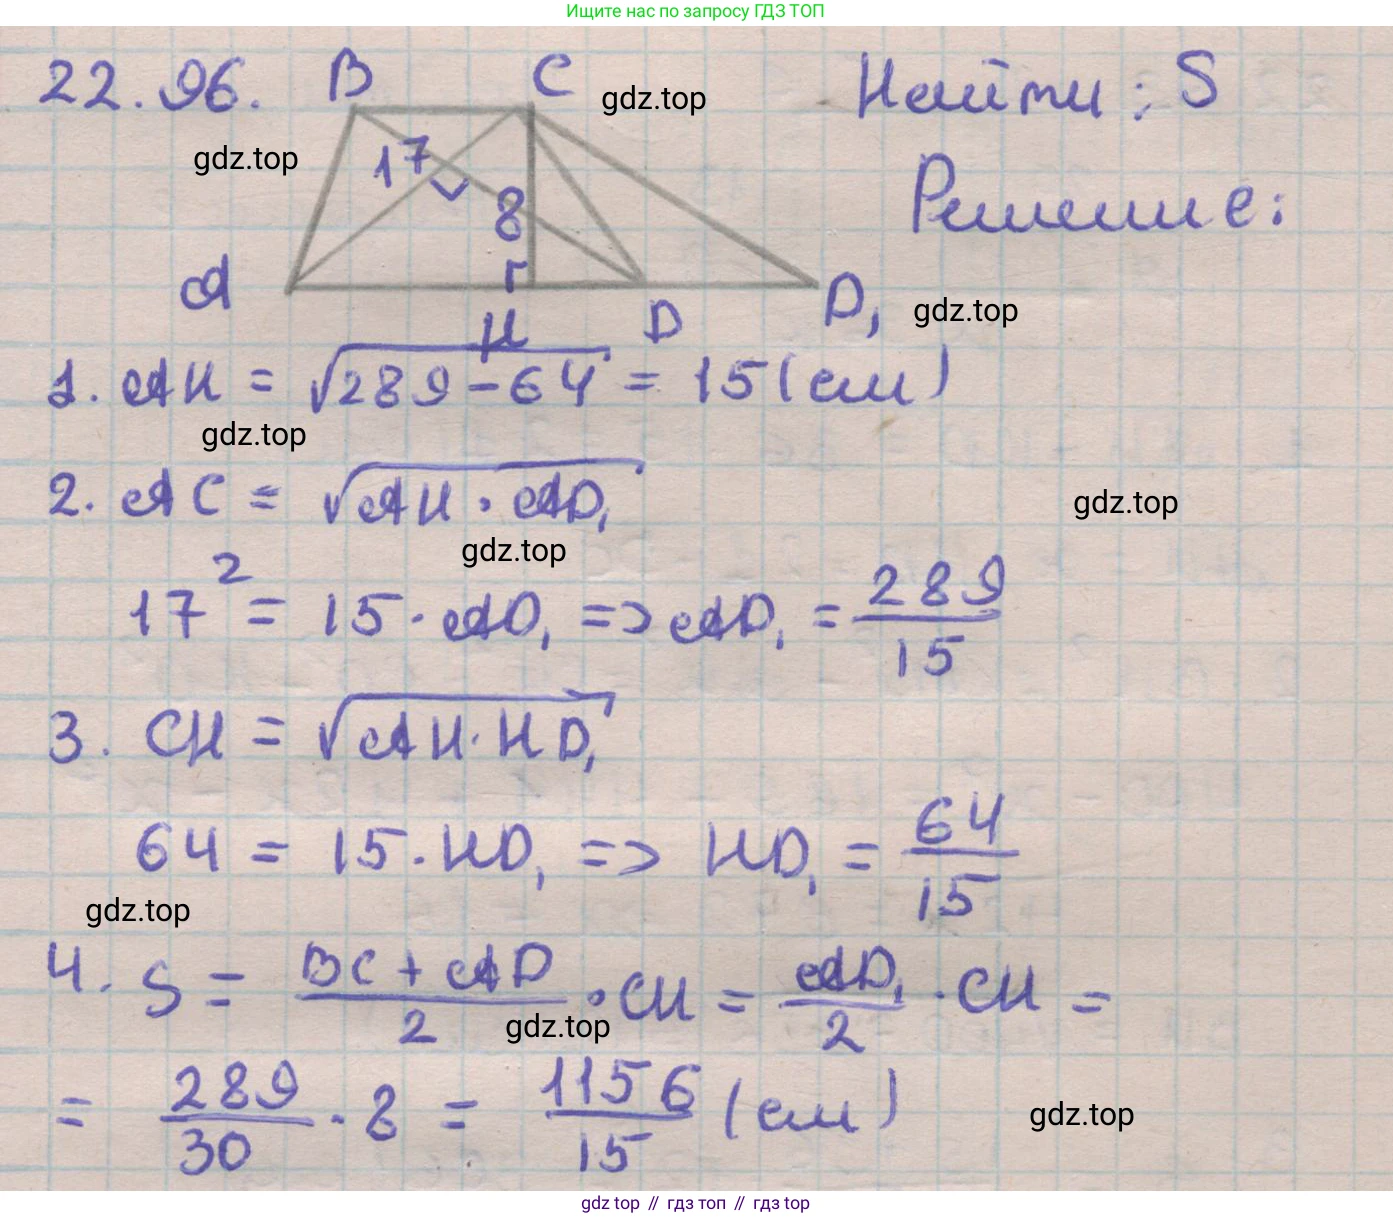 Ищите нас по запросу ГДЗ ТОП
22.96. B C gdz.top Найти: S
gdz.top 17 8 Решение:
A H D D₁ gdz.top
1. AH = √289-64 = 15(см)
gdz.top
2. AC = √AH · AD₁ gdz.top
gdz.top
17² = 15 · AD₁ => AD₁ = 289/15
3. CH = √AH · HD₁
64 = 15 · HD₁ => HD₁ = 64/15
gdz.top
4. S = BC + AD/2 · CH = AD₁/2 · CH =
gdz.top
= 289/30 · 8 = 1156/15 (см) gdz.top
gdz top // гдз топ // гдз top